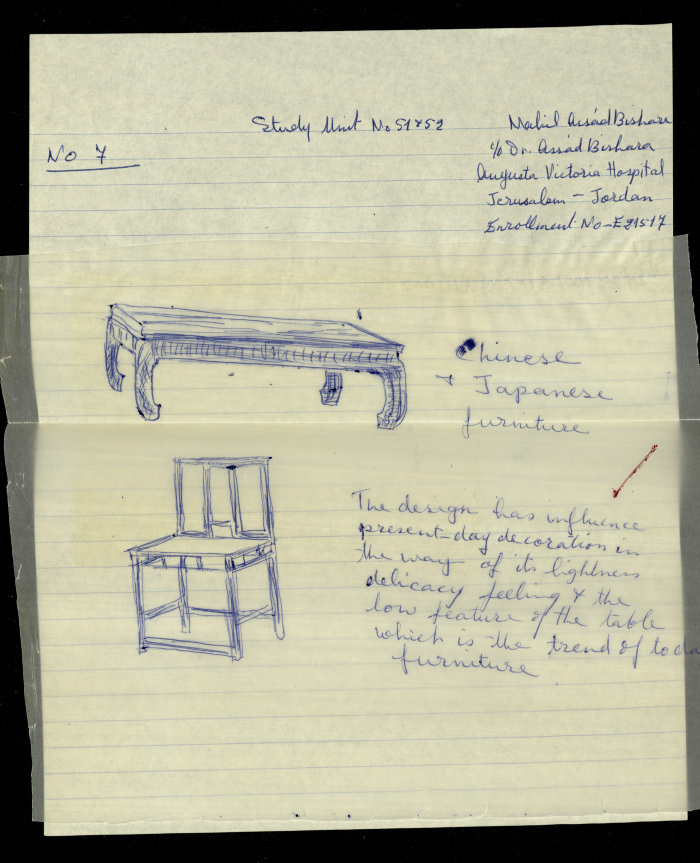 Study Unit No 51 & 52
No 7
Assád Bishara
c/o Dr. Assád Bishara
Augusta Victoria Hospital
Jerusalem – Jordan
Enrollment No – E21517
Chinese
+ Japanese
furniture
The design has influence
present-day decoration in
the way of its lightness
delicacy feeling & the
low feature of the table
which is the trend of toda
furniture